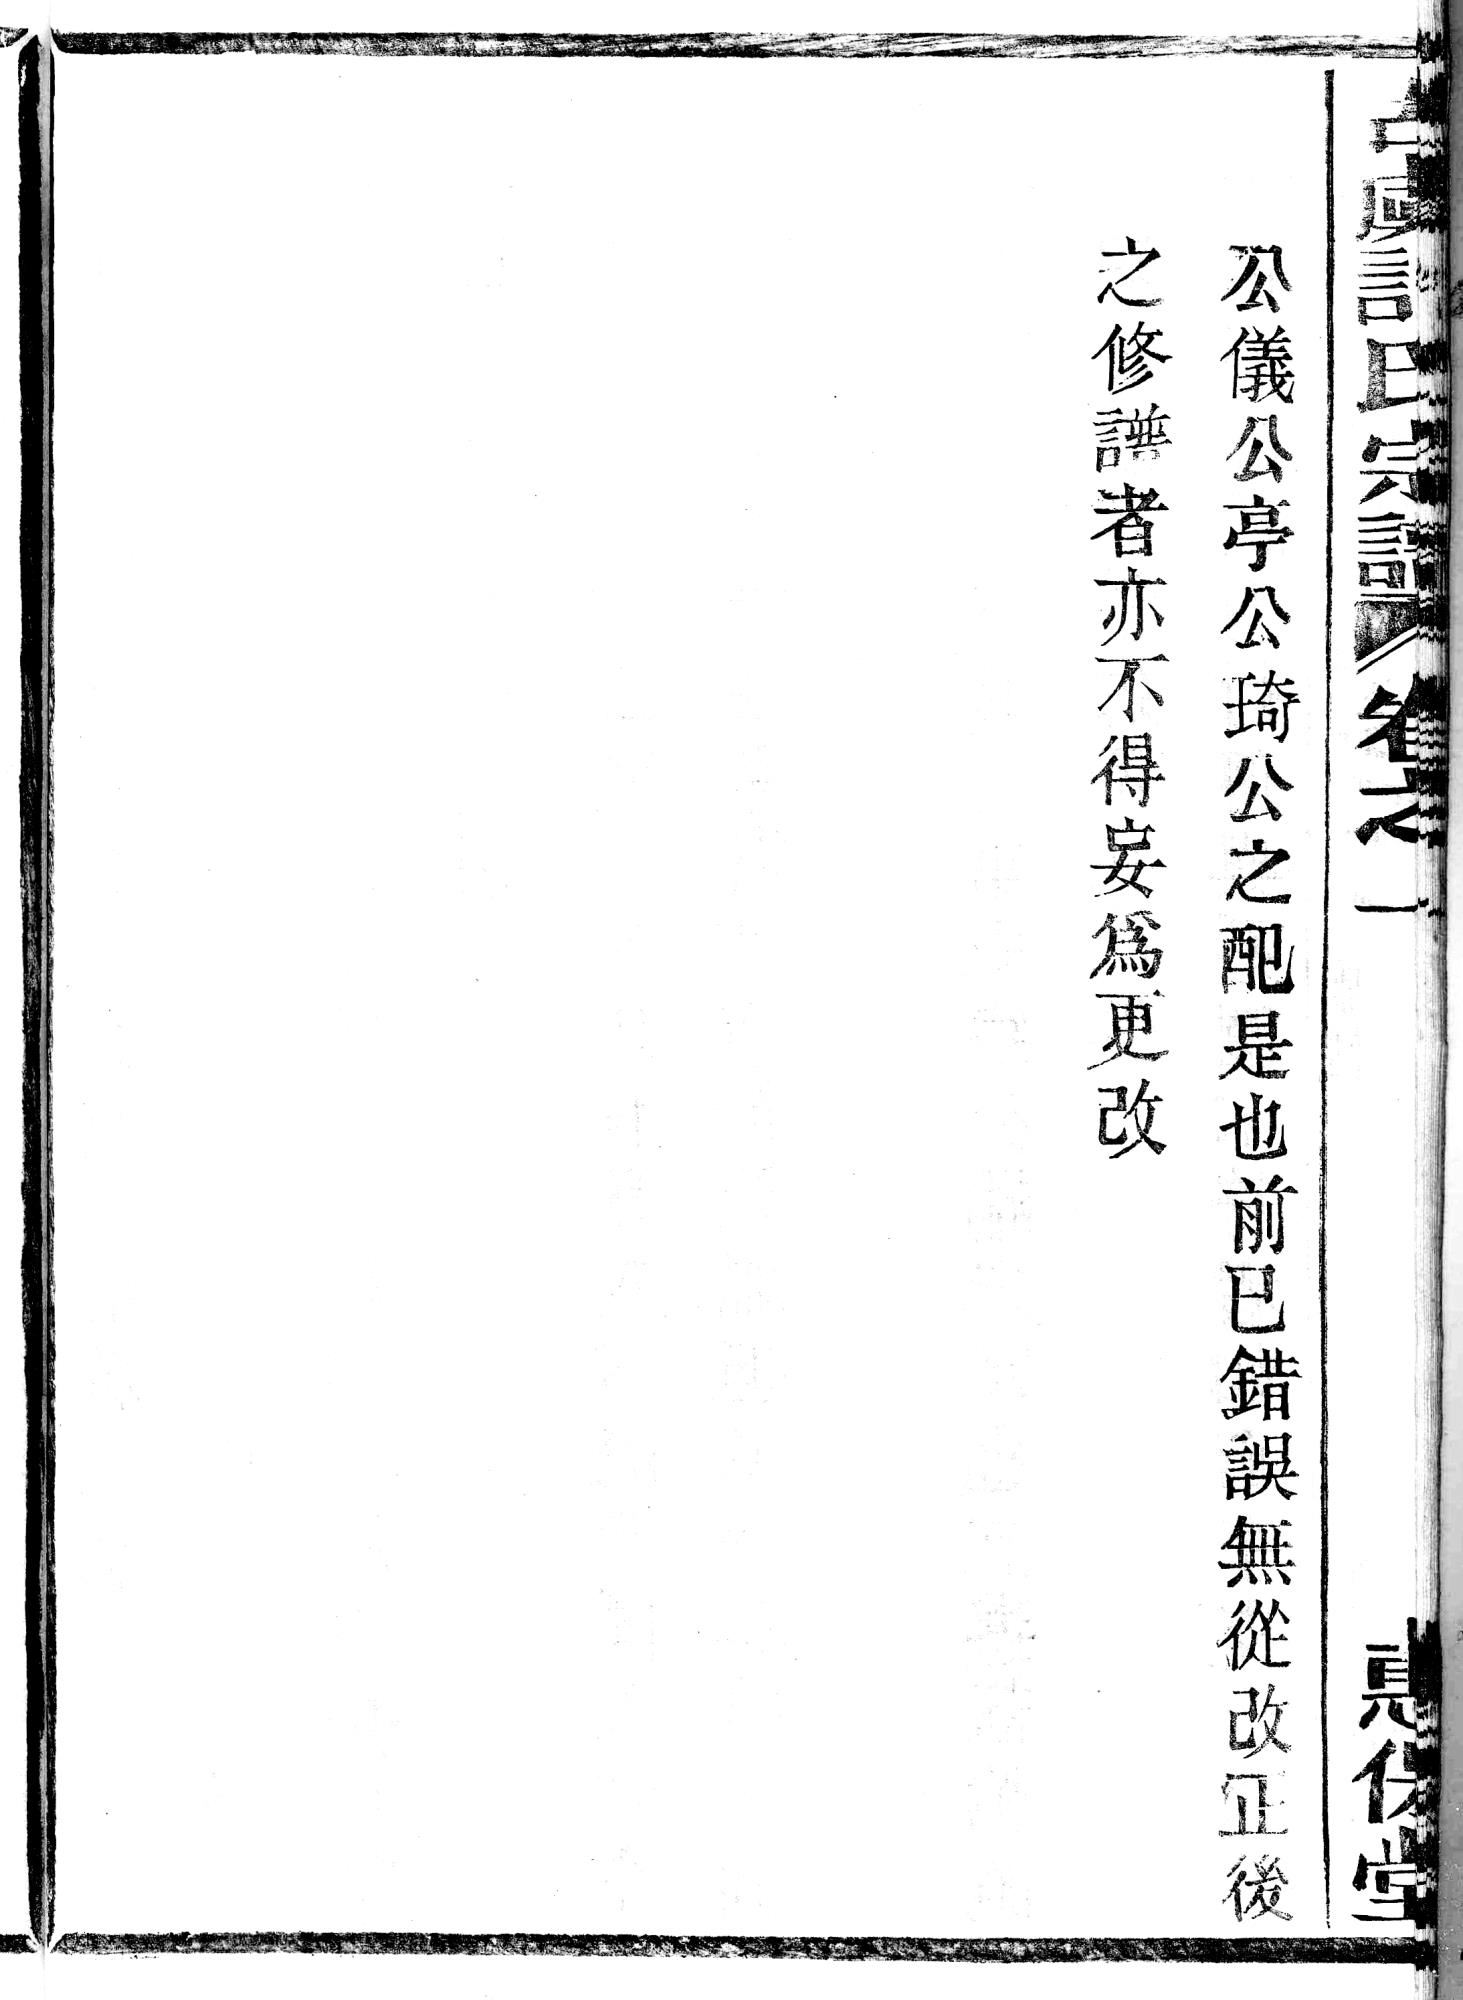 氏宗譜 卷之一
惠保堂
公儀公亭公琦公之配是也前已錯誤無從改正後
之修譜者亦不得妄爲更改